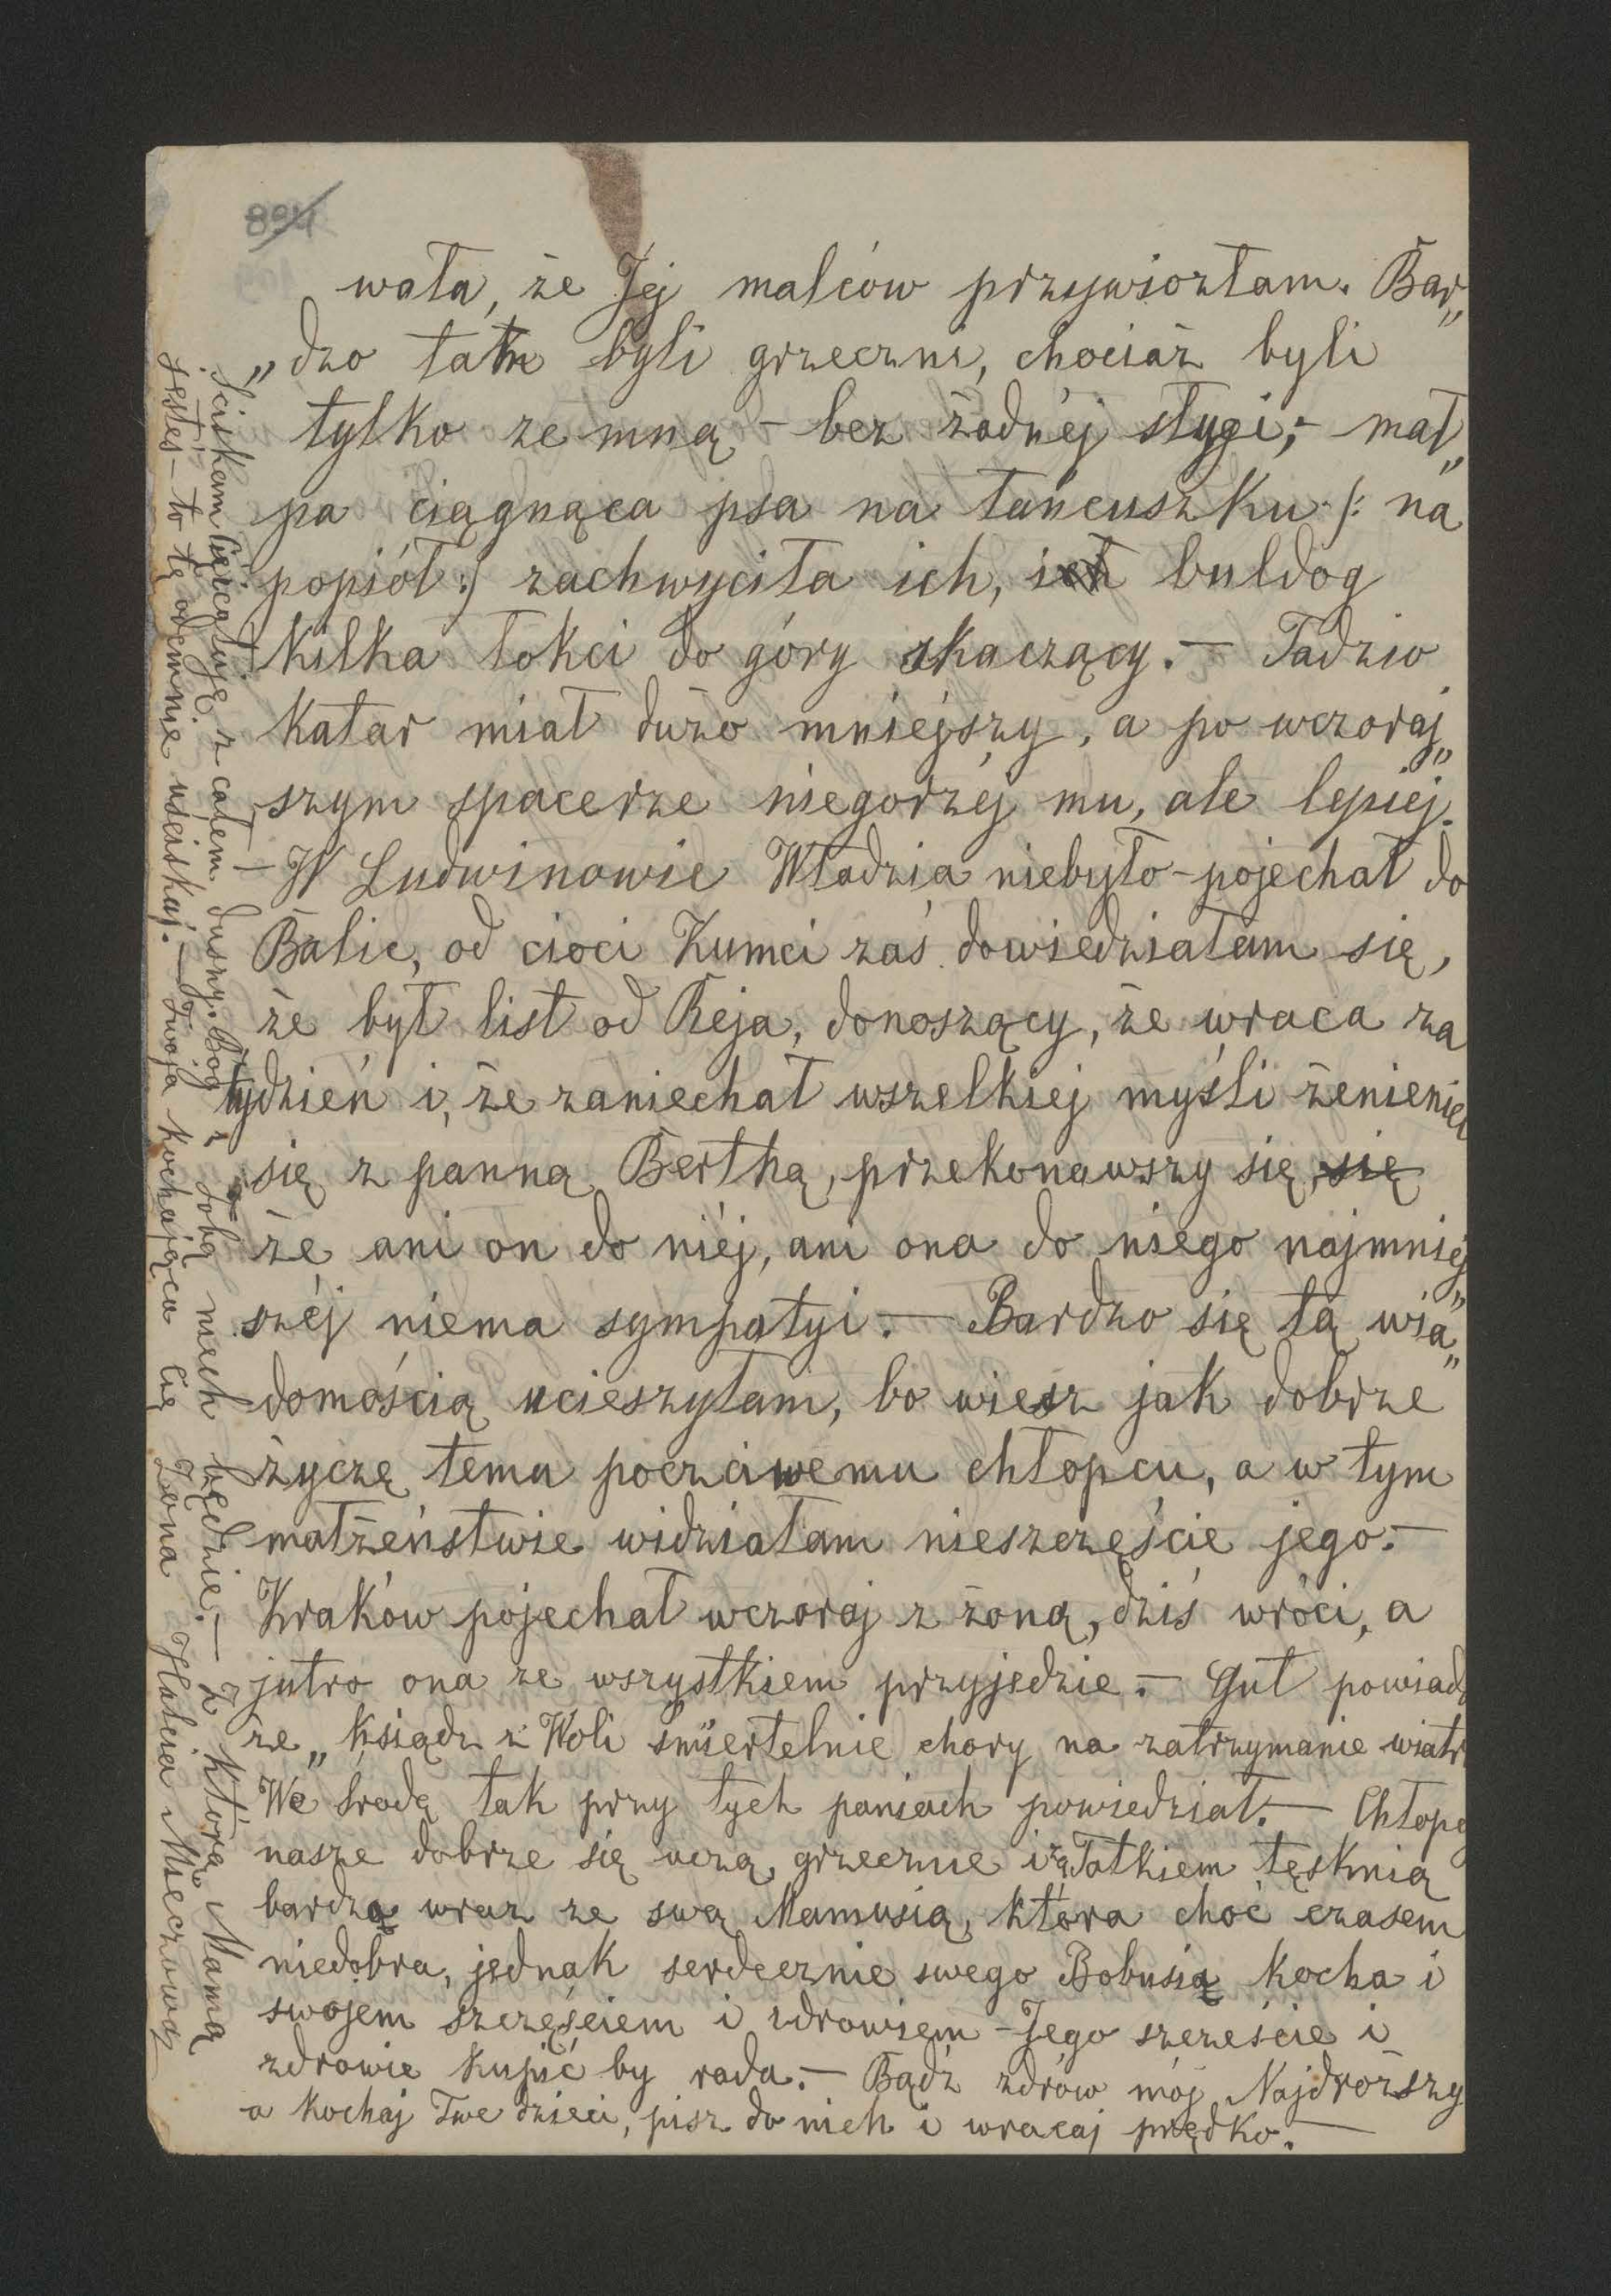 894
wała, że Jej malców przywiozłam. Bar„
„dzo tam byli grzeczni, chociaż byli
tylko ze mną – bez żadnéj sługi; – mał„
pa ciągnąca psa na łańcuszku /: na
popiół :/ zachwyciła ich, ich buldog
kilka łokci do góry skaczący. – Tadzio
katar miał dużo mniejszy, a po wczoraj„
szym spacerze niegorzéj mu, ale lepiéj.
– W Ludwinowie Władzia niebyło – pojechał do
Balic, od cioci Kumci zaś dowiedziałam się,
że był list od Reja, donoszący, że wraca za
tydzień i, że zaniechał wszelkiej myśli żenienia
się z panną Berthą, przekonawszy się, się
że ani on do niéj, ani ona do niego najmniej„
széj niema sympatyi. – Bardzo się tą wia„
domością ucieszyłam, bo wiesz jak dobrze
życzę temu poczciwemu chłopcu, a w tym
małżeństwie widziałam nieszczęście jego. –
Kraków pojechał wczoraj z żoną, dziś wróci, a
jutro ona ze wszystkiem przyjedzie. – Gut powiada
że „ksiądz z Woli śmiertelnie chory na zatrzymanie wiatr
We środę tak przy tych paniach powiedział. – Chłopc
nasze dobrze się uczą, grzecznie i za Tatkiem tęsknią
bardzo wraz ze swą Mamusią, która choć czasem
niedobra, jednak serdecznie swego Bobusia kocha i
swojem szczęściem i zdrowiem – Jego szczeście i
zdrowie kupić by rada. – Bądź zdrów mój Najdroższy
a kochaj Twe dzieci, pisz do nich i wracaj prędko. –
Ściskam Cię i całuję z całem duszy. Bóg z Tobą niech będzie. – Z którą Mamą
jesteś – to tę odemnie uściskaj. – Twoja kochająca Cię Żona Helcia Mieczowa